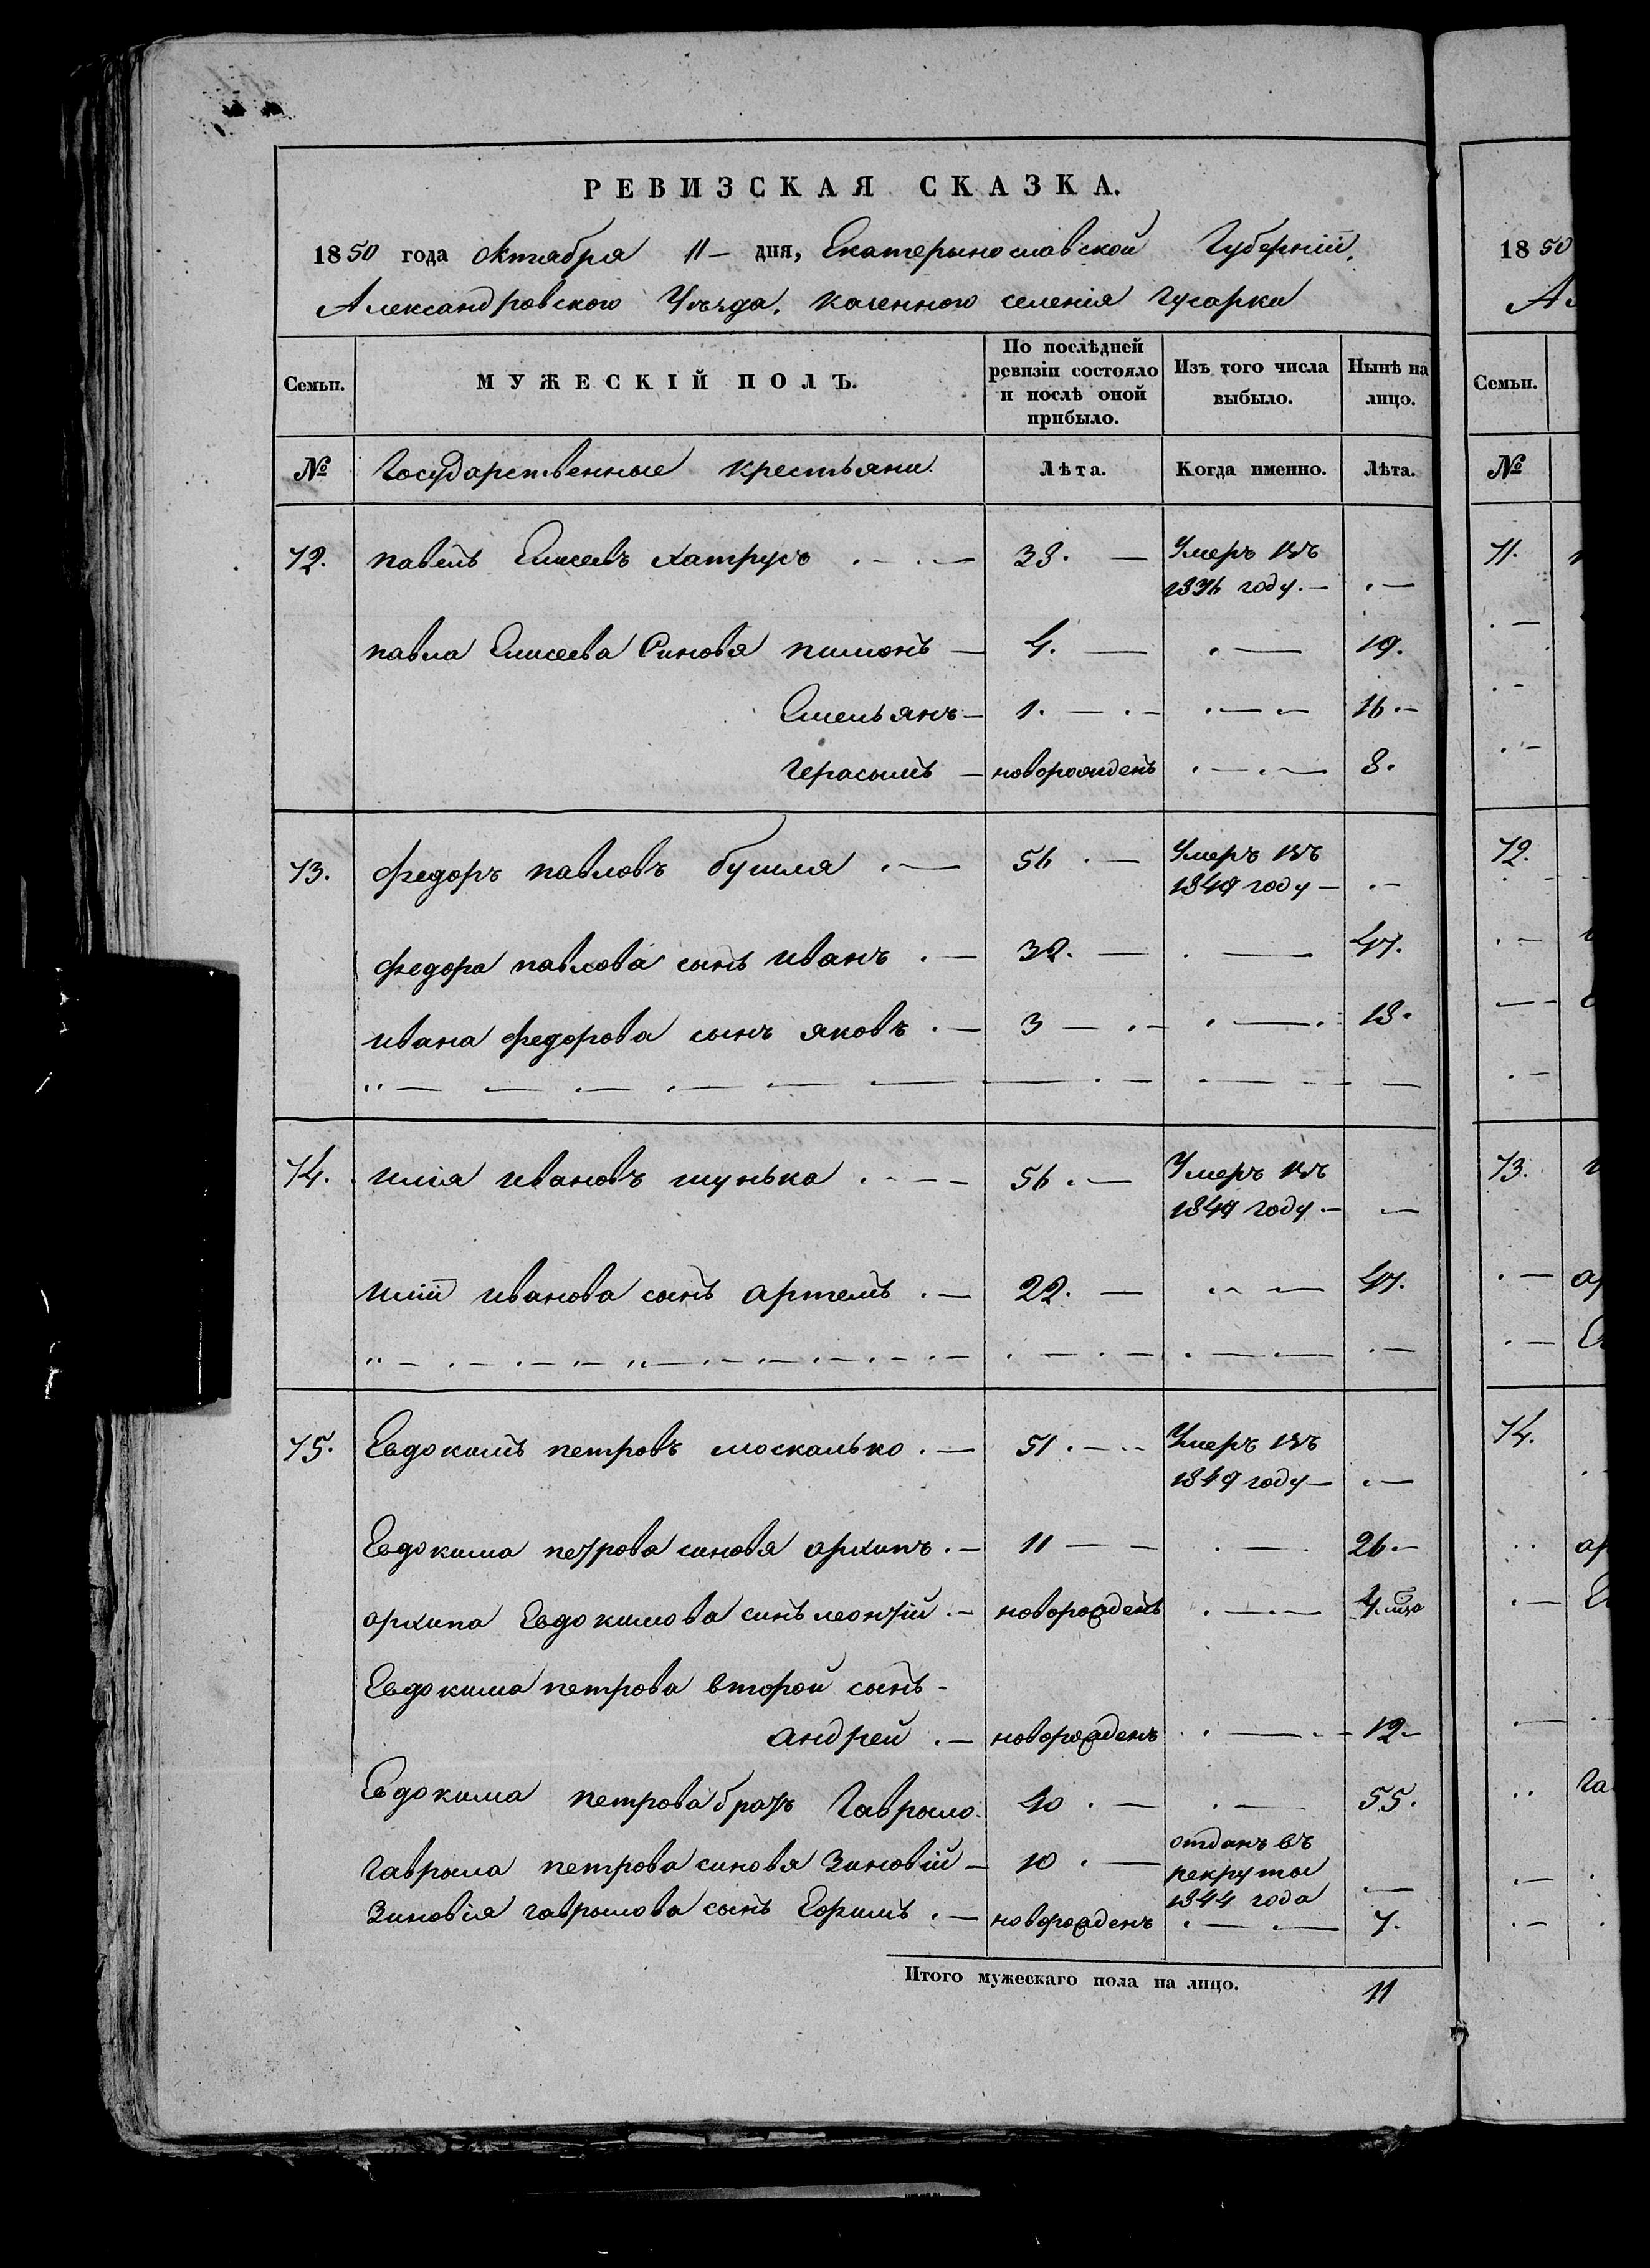 РЕВИЗСКАЯ СКАЗКА.
1850 года октября 11 дня, Екатерынославской Губерніи,
Александровского Уѣзда, казенного селенія Гусарки
Семьи.
МУЖЕСКІЙ ПОЛЪ.
По послѣдней ревизіи состояло и послѣ оной прибыло.
Изъ того числа выбыло.
Нынѣ на лицо.
№ Государственные крестьяни. Лѣта. Когда именно. Лѣта.
72. павелъ Елисеевъ хатрусъ 23. Умеръ въ
1836 году.
павла Елисеева Синовя пимонъ 4. 19.
Емельянъ 1. 16.
Герасымъ новорожденъ 8.
73. федоръ павловъ бушля 56 Умеръ въ
1849 году
федора павлова сынъ иванъ 32. 47.
ивана федорова сынъ яковъ 3 18.
74. илія ивановъ шунька 56. Умеръ въ
1849 году
иліи иванова сынъ артемъ 22. 47.
75. Евдокимъ петровъ москалько 51. Умеръ въ
1849 году
Евдокима петрова синовя архипъ 11 26.
архипа Евдокимова синъ леонтій новорожденъ 4.
Евдокима петрова второй сынъ
андрей новорожденъ 12
Евдокима петрова братъ Гаврыло. 40 55.
гаврыла петрова синовя Зиновій 10 отданъ въ
рекруты
1844 года
Зиновія гаврылова сынъ Ефимъ новорожденъ 7.
Итого мужескаго пола на лицо. 11
1850
Семьи.
№
71.
72.
73.
74.